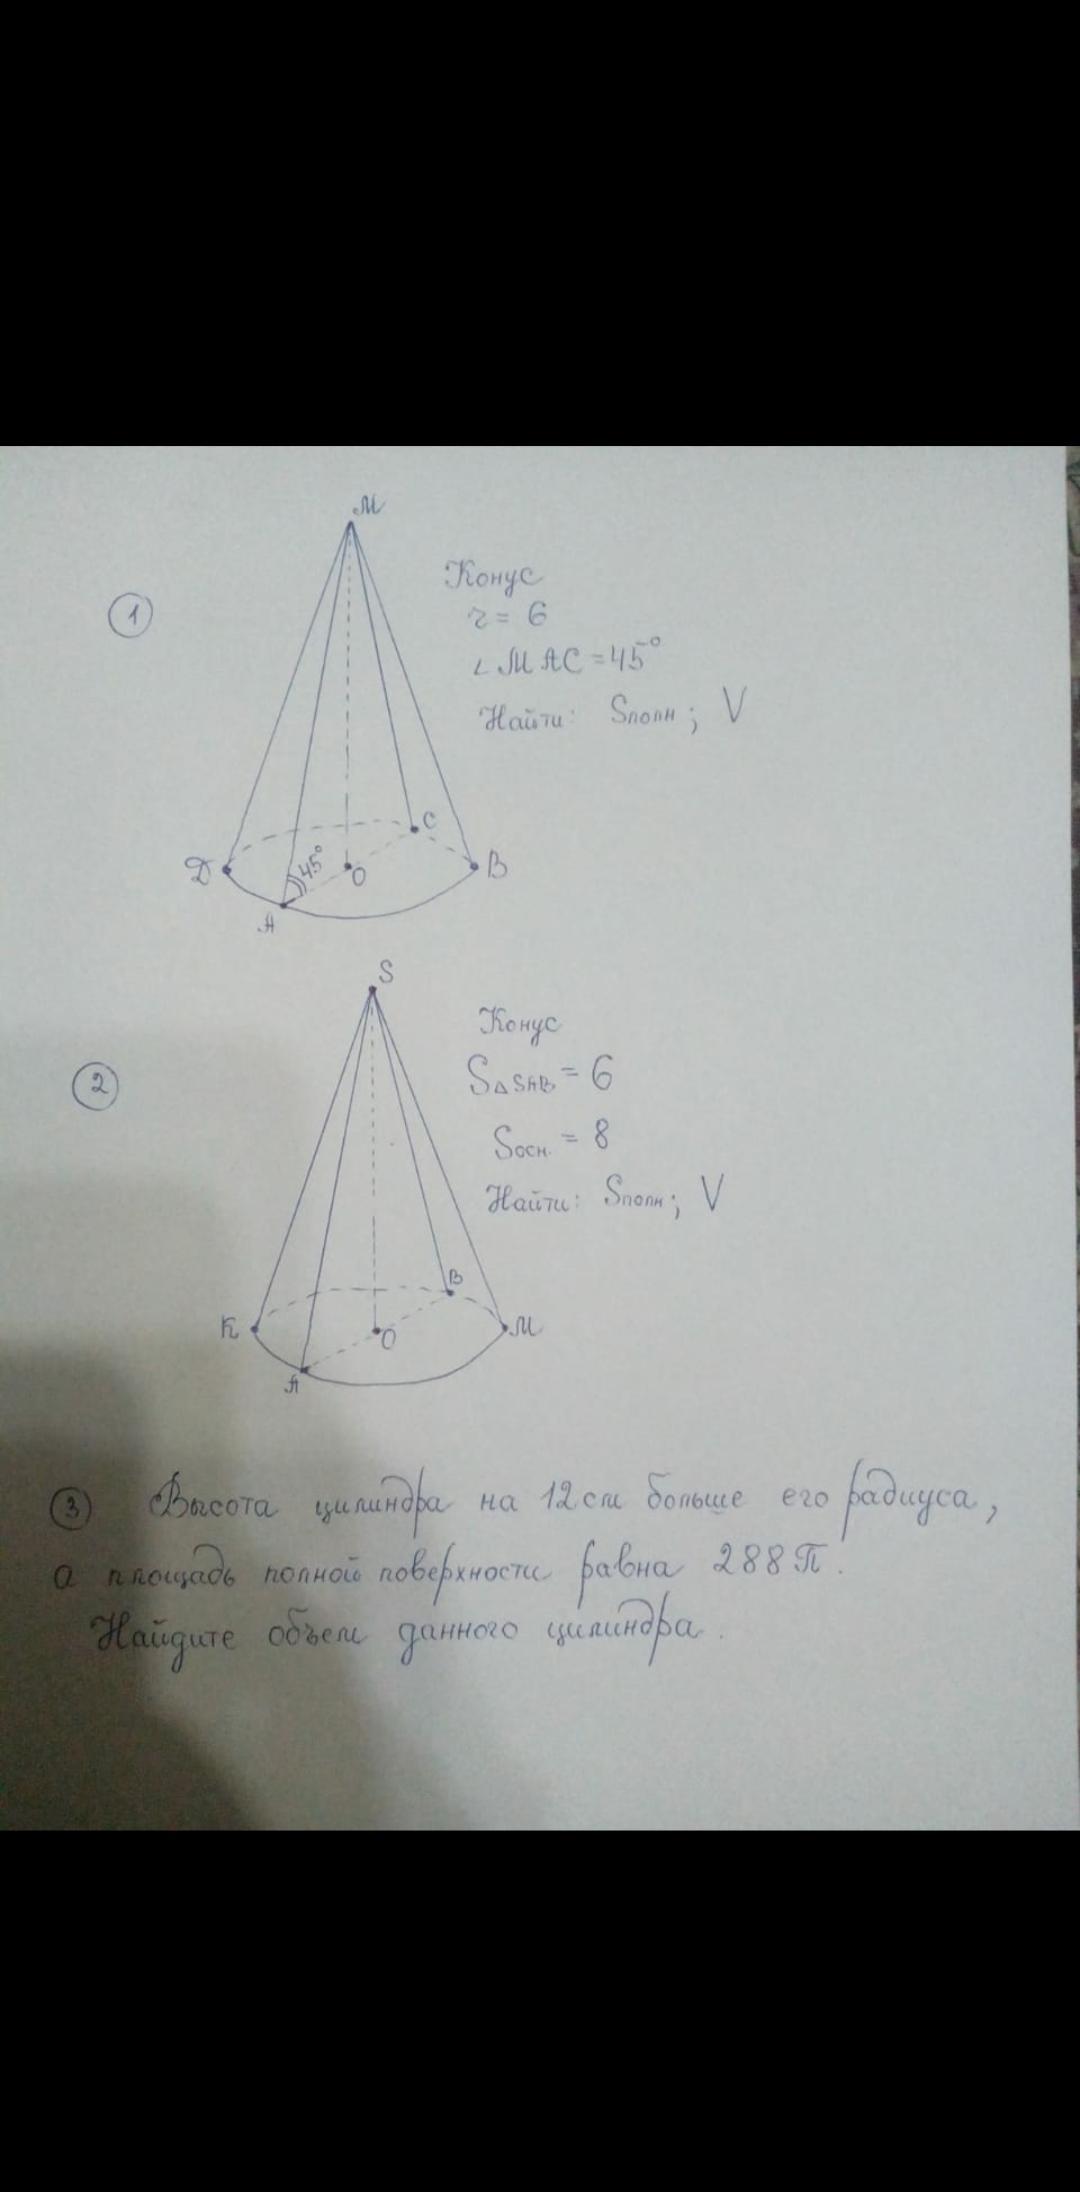 M
Конус
1
r = 6
∠ MAC = 45°
Найти: Sполн ; V
C
45°
Д
O
B
A
S
Конус
2
S△SAB = 6
Sосн. = 8
Найти: Sполн ; V
B
K
O
M
A
3 Высота цилиндра на 12 см больше его радиуса,
а площадь полной поверхности равна 288 π.
Найдите объем данного цилиндра.